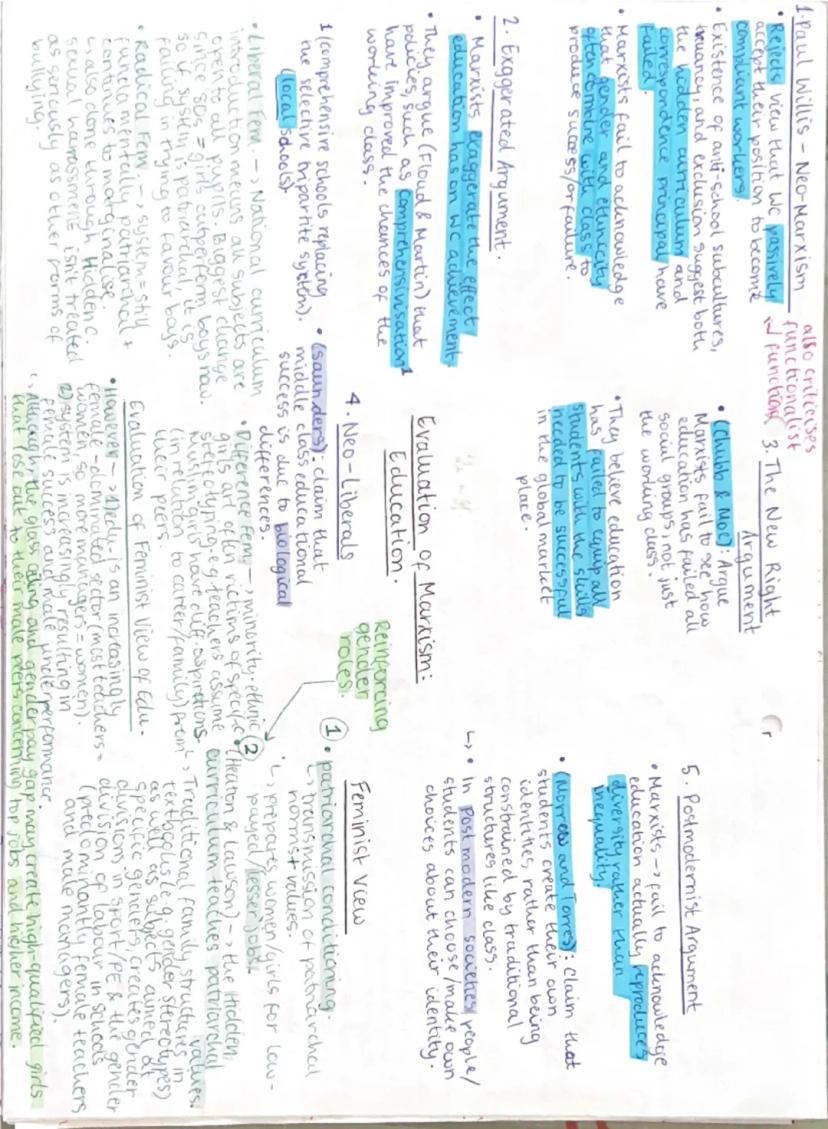 1. Paul Willis - Neo-Marxism
also criticises
functionalist
↲ function
• Rejects view that WC passively
accept their position to become
compliant workers.
• Existence of anti-school subcultures,
truancy, and exclusion suggest both
the hidden curriculum and
correspondence principal have
failed.
• Marxists fail to acknowledge
that gender and ethnicity
often combine with class to
produce success/or failure.
2. Exaggerated Argument.
• Marxists exaggerate the effect
education has on WC achievement.
• They argue (Floud & Martin) that
policies, such as comprehensivisation¹
have improved the chances of the
working class.
1 (comprehensive schools replacing
the selective tripartite system).
(local schools)
3. The New Right
Argument
• (Chubb & Moe): Argue
Marxists fail to see how
education has failed all
social groups, not just
the working class.
• They believe education
has failed to equip all
students with the skills
needed to be successful
in the global market
place.
Evaluation of Marxism:
Education.
4. Neo-Liberals
• (Saunders): claim that
middle class educational
success is due to biological
differences.
5. Postmodernist Argument
• Marxists → fail to acknowledge
education actually reproduces
diversity rather than
inequality.
• (Morrow and Torres): Claim that
students create their own
identities, rather than being
constrained by traditional
structures like class.
↳ • In Post modern societies people/
students can choose/make own
choices about their identity.
Feminist View
Reinforcing
gender
roles.
1 • patriarchal conditioning:
↳ transmission of patriarchal
norms + values.
↳ prepares women/girls for low-
payed/lesser jobs.
2 • (Heaton & Lawson) → the Hidden
curriculum teaches patriarchal
values.
↳ Traditional family structures in
textbooks (e.g. gender stereotypes)
as well as subjects aimed at
specific genders, creates gender
divisions in sport/PE & the gender
division of labour in schools
(predominantly female teachers
and male managers).
• Liberal Fem. → National curriculum
introduction means all subjects are
open to all pupils. Biggest change
since 80s = girls outperform boys now.
so if system is patriarchal, it is
failing in trying to favour boys.
• Radical Fem. → system = still
fundementally patriarchal +
continues to marginalise.
↳ also done through Hidden C.
sexual harassment isn't treated
as seriously as other forms of
bullying.
• Difference Fem → minority-ethnic
girls are often victims of specific
stereotyping. e.g. teachers assume
Muslim girls have diff. aspirations
(in relation to career/family) from
their peers.
Evaluation of Feminist View of Edu-
• However → 1) edu- is an increasingly
female-dominated sector (most teachers =
women, so more managers = women).
2) system is increasingly resulting in
female success and male underperformance.
↳ Although, the glass ceiling and gender pay gap may create high-qualified girls
that lose out to their male peers concerning top jobs and higher income.